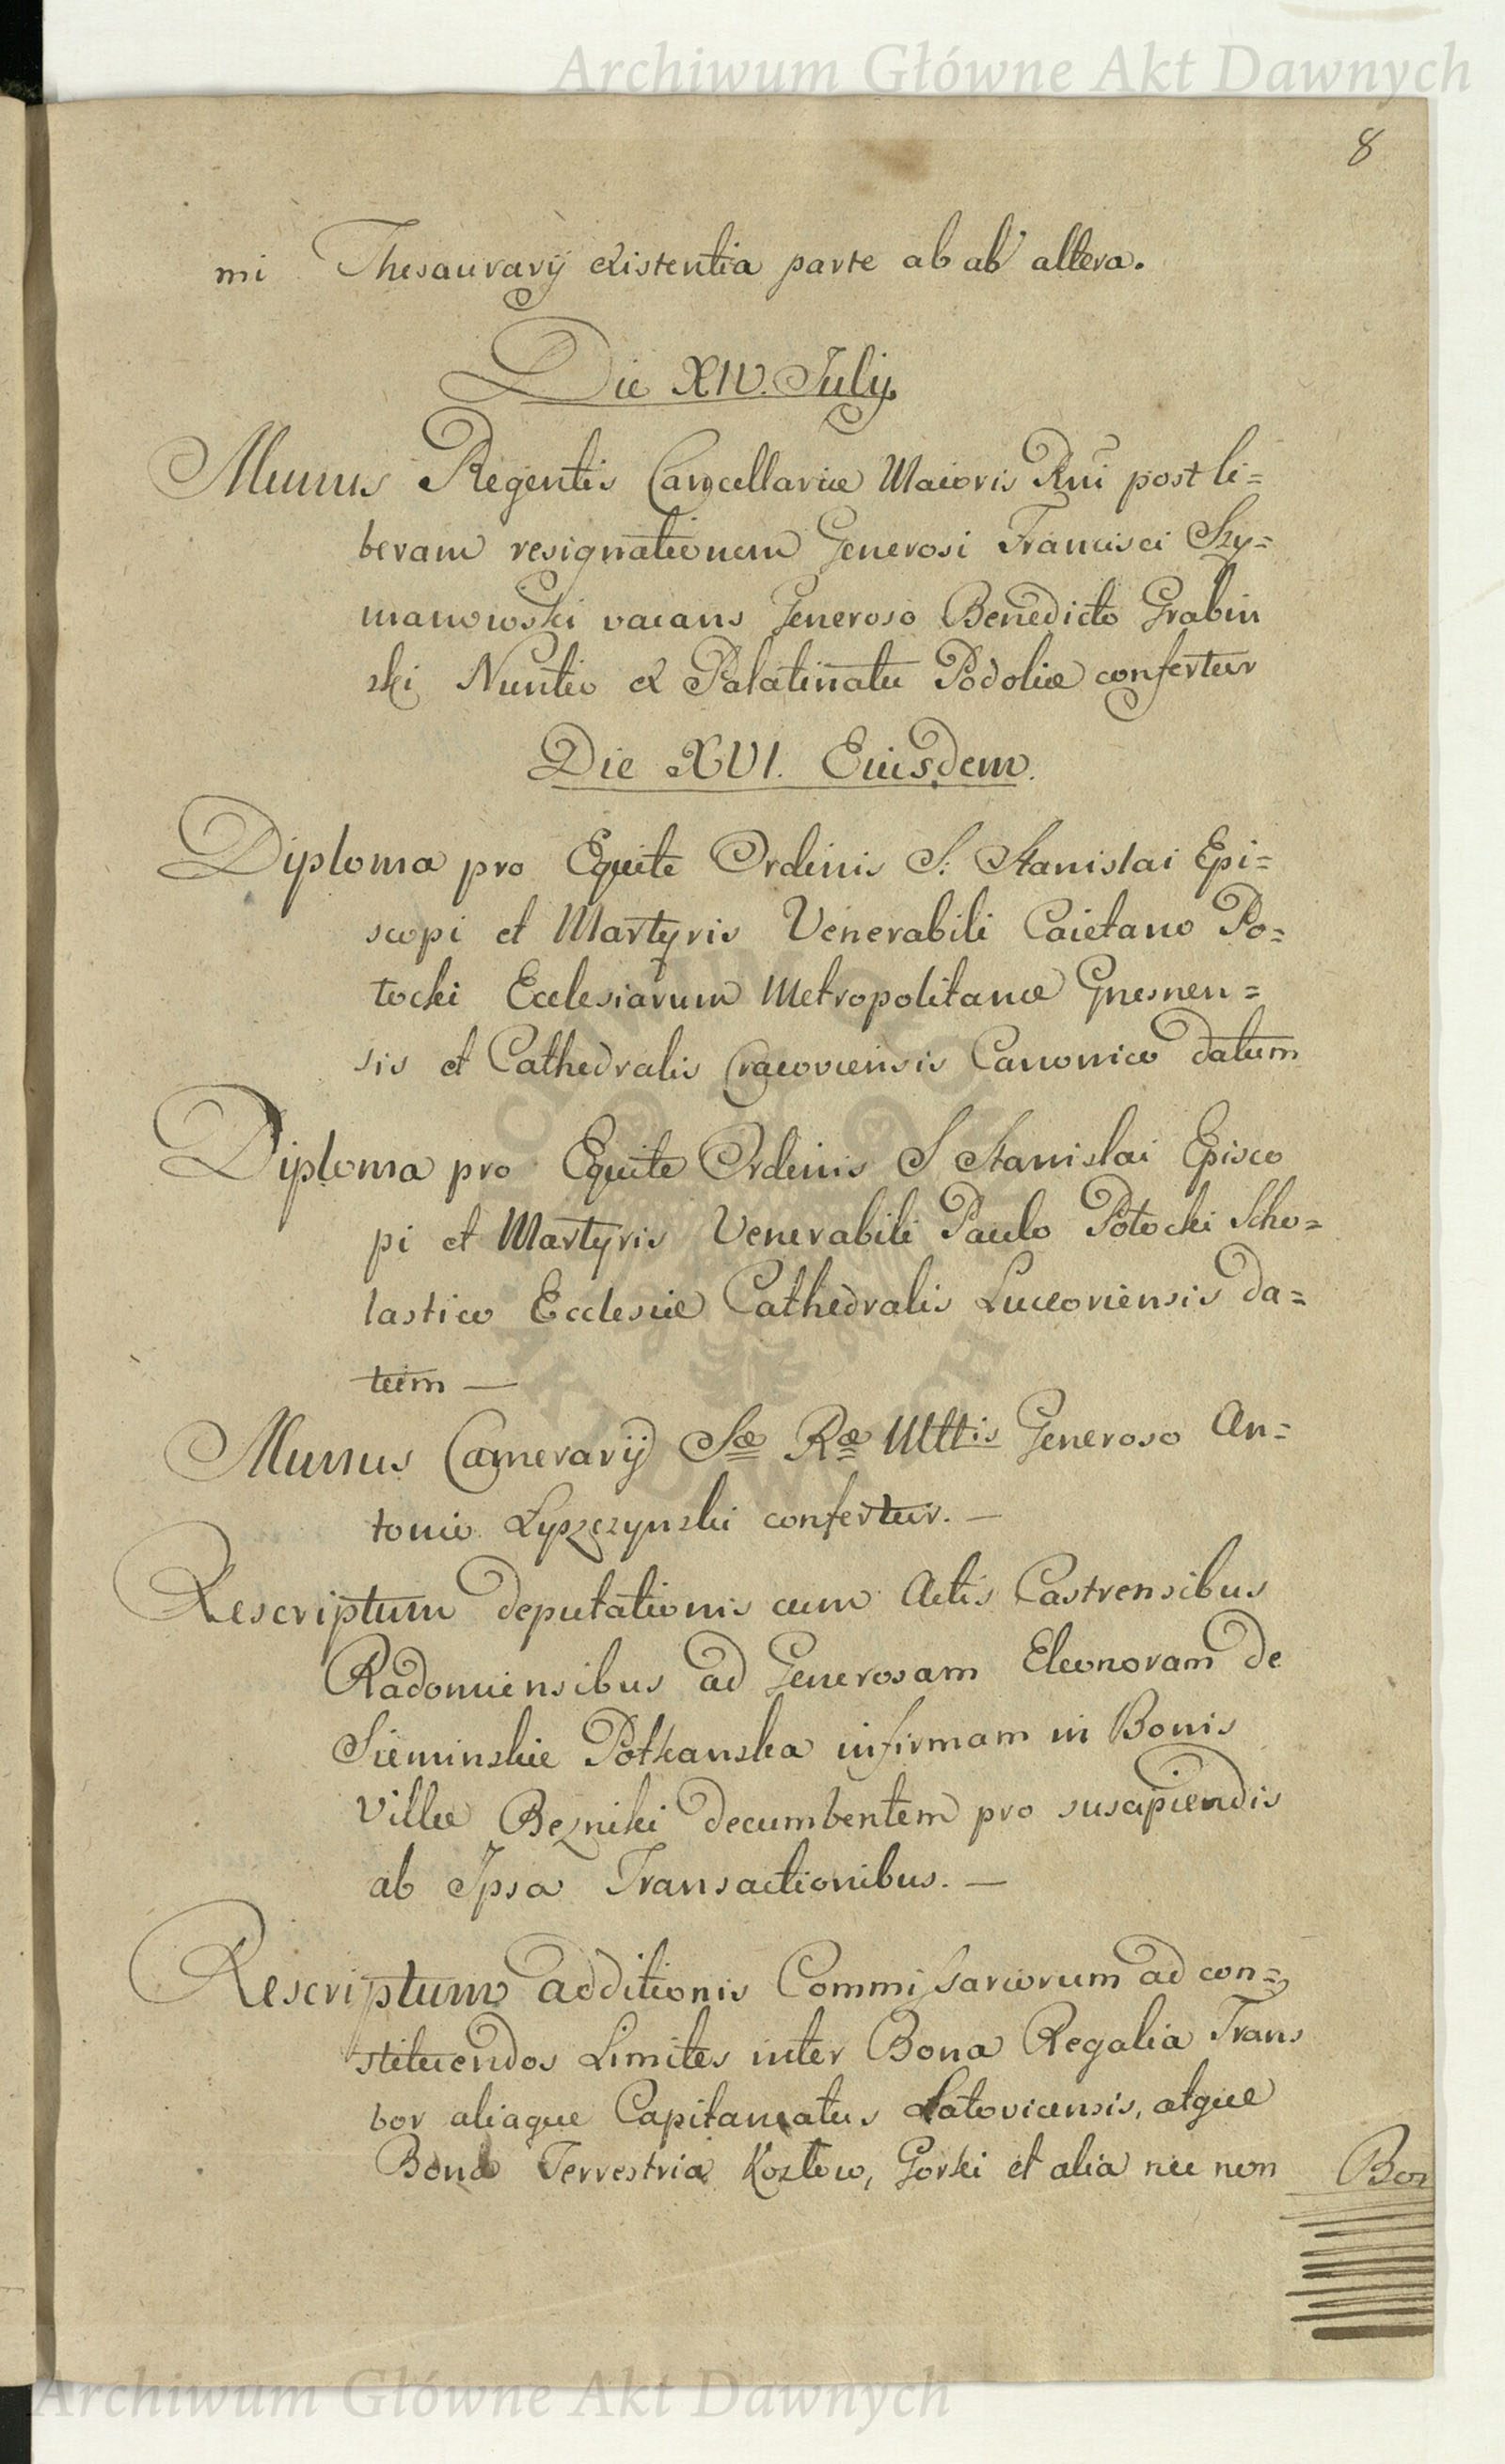 Archiwum Główne Akt Dawnych
8
mi Thesaurarij existentia parte ab ab altera.
Die XIV. Julij.
Munus Regentis Cancellariæ Maioris Rni post li=
beram resignationem Generosi Francisci Szy=
manowski vacans Generoso Benedicto Grabin
ski Nuntio ex Palatinatu Podoliæ confertur
Die XVI. Eiusdem.
Diploma pro Equite Ordinis S. Stanislai Epi=
scopi et Martyris Venerabili Caietano Po=
tocki Ecclesiarum Metropolitanæ Gnesnen=
sis et Cathedralis Cracoviensis Canonico datum
Diploma pro Equite Ordinis S Stanislai Episco
pi et Martyris Venerabili Paulo Potocki Scho=
lastico Ecclesiæ Cathedralis Luceoriensis da=
tum —
Munus Camerarij Sæ Ræ Mttis Generoso An=
tonio Lyszczynski confertur. —
Rescriptum deputationis cum Actis Castrensibus
Radomiensibus ad Generosam Eleonoram de
Sieminskie Potkanska infirmam in Bonis
Villæ Bezniki decumbentem pro suscipiendis
ab Ipsa Transactionibus. —
Rescriptum additionis Commissariorum ad con=
stituendos Limites inter Bona Regalia Trans
bor aliaque Capitaneatus Latovicensis, atque
Bona Terrestria Kozłow, Gorki et alia nec non
Bon
Archiwum Główne Akt Dawnych